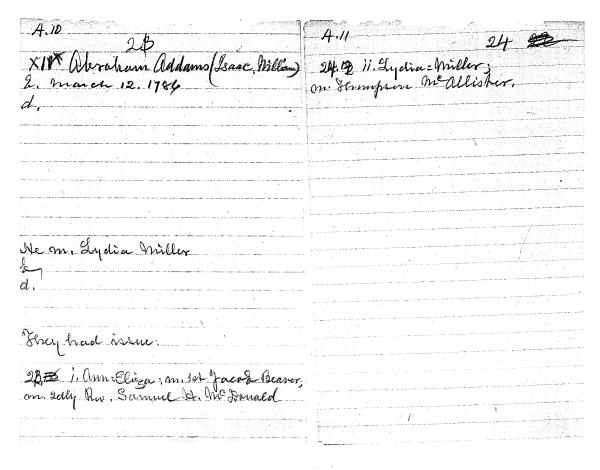 A.10
23
XIII Abraham Addams (Isaac, William)
b. March 12. 1786
d.
He m. Lydia Miller
b
d.
They had issue:
23 i. Ann=Eliza; m. 1st Jacob Beaver,
m. 2dly Rev. Samuel H. McDonald
A.11
24
24. ii. Lydia=Miller;
m. Thompson McAllister.